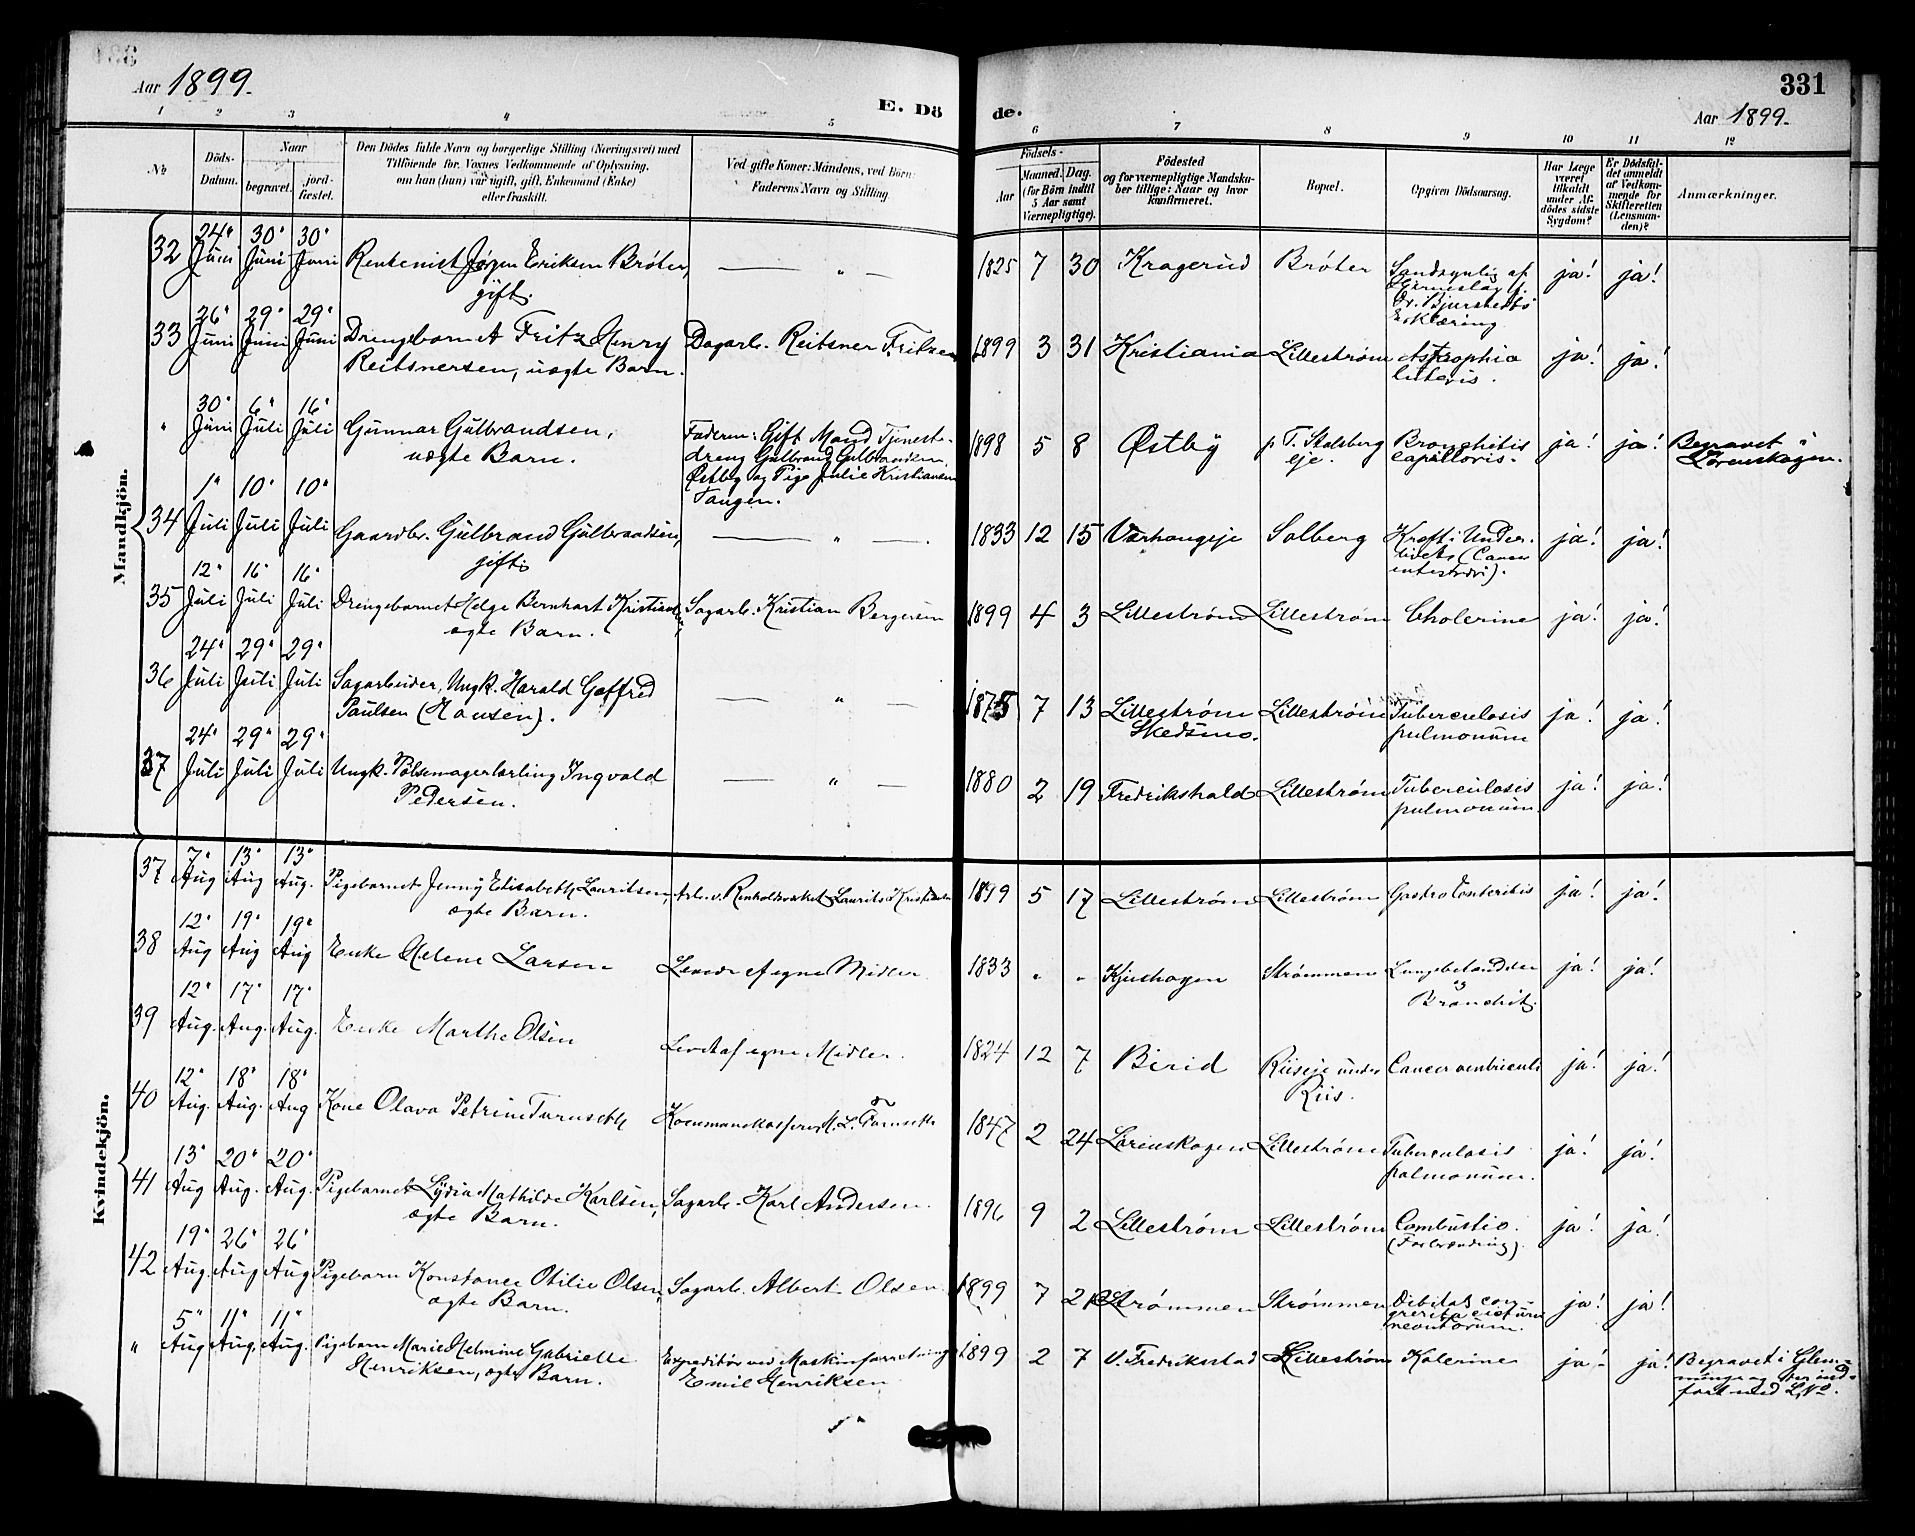 Aar 1899.
E. Dö
de.
331
Aar 1899.
1 2 3 4 5 6 7 8 9 10 11 12
No
Döds-
Datum.
Naar
begravet.
jord-
fæstet.
Den Dödes fulde Navn og borgerlige Stilling (Næringsvei) med
Tilföiende for Voxnes Vedkommende af Oplysning,
om han (hun) var ugift, gift, Enkemand (Enke)
eller fraskilt.
Ved gifte Koner: Mandens, ved Börn:
Faderens Navn og Stilling.
Födsels-
Aar
Maaned. Dag.
(for Börn indtil
5 Aar samt
Værnepligtige).
Födested
og for værnepligtige Mandska-
ber tillige: Naar og hvor
konfirmeret.
Bopæl.
Opgiven Dödsaarsag.
Har Læge
været
tilkaldt
under Af-
dödes sidste
Sygdom?
Er Dödsfal-
det anmeldt
af Vedkom-
mende for
Skifteretten
(Lensman-
den)?
Anmærkninger.
Mandkjön.
32 24' Juni 30' Juni 30' Juni Rentenist Jørgen Eriksen Brøter, — " — 1825 7 30 Kragerud Brøter Sandsynlig af
gift.
Hjerneslag f.
Dr. Bjurstedts
Erklæring
ja! ja!
33 26' Juni 29' Juni 29' Juni Drengebarnet Fritz Henry Dagarb. Reitsner Fritzen 1899 3 31 Kristiania Lillestrøm Astrophia ja! ja!
Reitsnersen, uægte Barn.
" 30' Juni 6' Juli 16' Juli Gunnar Gulbrandsen, Faderen: Gift Mand Tjeneste- 1898 5 8 Østby p. T. Stalsberg Bronchitis ja! ja! Begravet i
uægte Barn. dreng Gulbrand Gulbrandsen eje. capillaris. Lørenskogen.
Østby og Pige Julie Kristiansen
Tangen.
34 1' Juli 10' Juli 10' Juli Gaardbr. Gulbrand Gulbrandsen, — " — 1833 12 15 Varhaugeje Solberg Kræft i Under- ja! ja!
gift. livet (Cancer
35 12' Juli 16' Juli 16' Juli Drengebarnet Helge Bernhart Kristiansen, Sagarb. Kristian Bergersen 1899 4 3 Lillestrøm Lillestrøm Cholerine ja! ja!
ægte Barn.
36 24' Juli 29' Juli 29' Juli Sagarbeider, Ungk. Harald Gotfred — " — 1875 7 13 Lillestrøm Lillestrøm Tuberculosis ja! ja!
Paulsen (Hansen). Skedsmo. pulmonum
37 24' Juli 29' Juli 29' Juli Ungk. Pølsemagerlærling Ingvald — " — 1880 2 19 Fredrikshald Lillestrøm Tuberculosis ja! ja!
Pedersen. pulmonum
Kvindekjön.
37 7' Aug 13' Aug 13' Aug. Pigebarnet Jenny Elisabeth Lauritsen, Arb. v. Renholdsverket Laurits Kristiansen 1899 5 17 Lillestrøm Lillestrøm Gastro Enteritis ja! ja!
ægte Barn.
38 12' Aug 19' Aug 19' Aug Enke Helene Larsen Levede af egne Midler. 1833 " " Kjushagen Strømmen Lungebetændelse ja! ja!
og
Bronchit.
39 12' Aug. 17' Aug. 17' Aug. Enke Marthe Olsen Levet af egne Midler. 1824 12 7 Birid Riiseje under Cancer ventriculi ja! ja!
Riis.
40 12' Aug. 18' Aug. 18' Aug Kone Olava Petrine Furuseth M. L. Furuseth 1847 2 24 Lørenskogen Lillestrøm Tuberculosis ja! ja!
pulmonum.
41 13' Aug 20' Aug. 20' Aug. Pigebarnet Lydia Mathilde Karlsen, Sagarb. Karl Andersen. 1896 9 2 Lillestrøm Lillestrøm Combustio. ja! ja!
ægte Barn. (Forbrænding).
42 19' Aug. 26' Aug 26' Aug Pigebarn Konstance Otilie Olsen, Sagarb. Albert Olsen 1899 7 21 Strømmen Strømmen Debitas con- ja! ja!
ægte Barn.
" 5' Aug 11' Aug. 11' Aug. Pigebarn Marie Helmine Gabrielle Expeditør ved Maskinforretning 1899 2 7 V. Fredriksstad Lillestrøm Kolerine ja! ja! Begravet i Glem-
Henriksen, ægte Barn. Emil Henriksen minge og her ind-
ført med L. No.